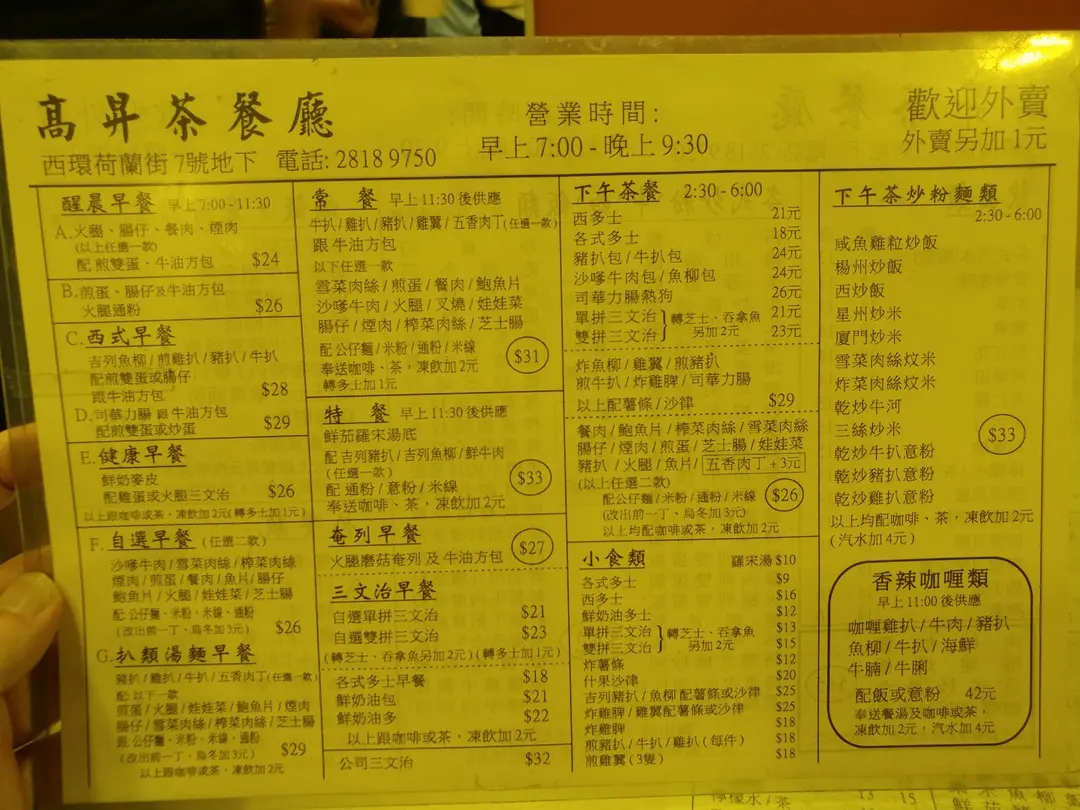 高昇茶餐廳
西環荷蘭街 7號地下 電話: 2818 9750
營業時間:
早上 7:00 - 晚上 9:30
歡迎外賣
外賣另加 1元
醒晨早餐 早上 7:00 - 11:30
A. 火腿、腸仔、餐肉、煙肉
(以上任選一款)
配 煎雙蛋、牛油方包 $24
B. 煎蛋、腸仔及牛油方包
火腿通粉 $26
C. 西式早餐
吉列魚柳 / 煎雞扒 / 豬扒 / 牛扒
配煎雙蛋或腸仔
跟牛油方包 $28
D. 司華力腸 跟牛油方包
配煎雙蛋或炒蛋 $29
E. 健康早餐
鮮奶麥皮
配雞蛋或火腿三文治 $26
以上跟咖啡或茶，凍飲加 2元 (轉多士加 1元)
F. 自選早餐 (任選二款)
沙嗲牛肉 / 雪菜肉絲 / 榨菜肉絲
煙肉 / 煎蛋 / 餐肉 / 魚片 / 腸仔
鮑魚片 / 火腿 / 娃娃菜 / 芝士腸
配 公仔麵、米粉、米線、通粉
(改出前一丁、烏冬加 3元) $26
G. 扒類湯麵早餐
豬扒 / 雞扒 / 牛扒 / 五香肉丁 (任選一款)
配 以下一款
煎蛋 / 火腿 / 娃娃菜 / 鮑魚片 / 煙肉
腸仔 / 雪菜肉絲 / 榨菜肉絲 / 芝士腸
跟 公仔麵、米粉、米線、通粉
(改出前一丁、烏冬加 3元) $29
以上跟咖啡或茶、凍飲加 2元
常 餐 早上 11:30 後供應
牛扒 / 雞扒 / 豬扒 / 雞翼 / 五香肉丁 (任選一款)
跟 牛油方包
以下任選一款
雪菜肉絲 / 煎蛋 / 餐肉 / 鮑魚片
沙嗲牛肉 / 火腿 / 叉燒 / 娃娃菜
腸仔 / 煙肉 / 榨菜肉絲 / 芝士腸
配 公仔麵 / 米粉 / 通粉 / 米線
奉送咖啡、茶，凍飲加 2元
轉多士加 1元
$31
特 餐 早上 11:30 後供應
鮮茄羅宋湯底
配 吉列豬扒 / 吉列魚柳 / 鮮牛肉
(任選一款)
配 通粉 / 意粉 / 米線
奉送咖啡、茶，凍飲加 2元
$33
奄列早餐
火腿磨菇奄列 及 牛油方包 $27
三文治早餐
自選單拼三文治 $21
自選雙拼三文治 $23
(轉芝士、吞拿魚另加 2元) (轉多士加 1元)
各式多士早餐 $18
鮮奶油包 $21
鮮奶油多 $22
以上跟咖啡或茶、凍飲加 2元
公司三文治 $32
下午茶餐 2:30 - 6:00
西多士 21元
各式多士 18元
豬扒包 / 牛扒包 24元
沙嗲牛肉包 / 魚柳包 24元
司華力腸熱狗 26元
單拼三文治 21元
雙拼三文治 23元
轉芝士、吞拿魚
另加 2元
炸魚柳 / 雞翼 / 煎豬扒
煎牛扒 / 炸雞脾 / 司華力腸
以上配薯條 / 沙律 $29
餐肉 / 鮑魚片 / 榨菜肉絲 / 雪菜肉絲
腸仔 / 煙肉 / 煎蛋 / 芝士腸 / 娃娃菜
豬扒 / 火腿 / 魚片 / 五香肉丁 + 3元
(以上任選二款)
配公仔麵 / 米粉 / 通粉 / 米線
(改出前一丁、烏冬加 3元)
以上均配咖啡或茶、凍飲加 2元
$26
小食類 羅宋湯 $10
各式多士 $9
西多士 $16
鮮奶油多士 $12
單拼三文治 $13
雙拼三文治 $15
轉芝士、吞拿魚
另加 2元
炸薯條 $12
什果沙律 $20
吉列豬扒 / 魚柳 配薯條或沙律 $25
炸雞脾 / 雞翼配薯條或沙律 $25
炸雞脾 $18
煎豬扒 / 牛扒 / 雞扒 (每件) $18
煎雞翼 (3隻) $18
下午茶炒粉麵類
2:30 - 6:00
咸魚雞粒炒飯
楊州炒飯
西炒飯
星州炒米
廈門炒米
雪菜肉絲炆米
炸菜肉絲炆米
乾炒牛河
三絲炒米
乾炒牛扒意粉
乾炒豬扒意粉
乾炒雞扒意粉
$33
以上均配咖啡、茶，凍飲加 2元
(汽水加 4元)
香辣咖喱類
早上 11:00 後供應
咖喱雞扒 / 牛肉 / 豬扒
魚柳 / 牛扒 / 海鮮
牛腩 / 牛脷
配飯或意粉 42元
奉送餐湯及咖啡或茶，
凍飲加 2元，汽水加 4元